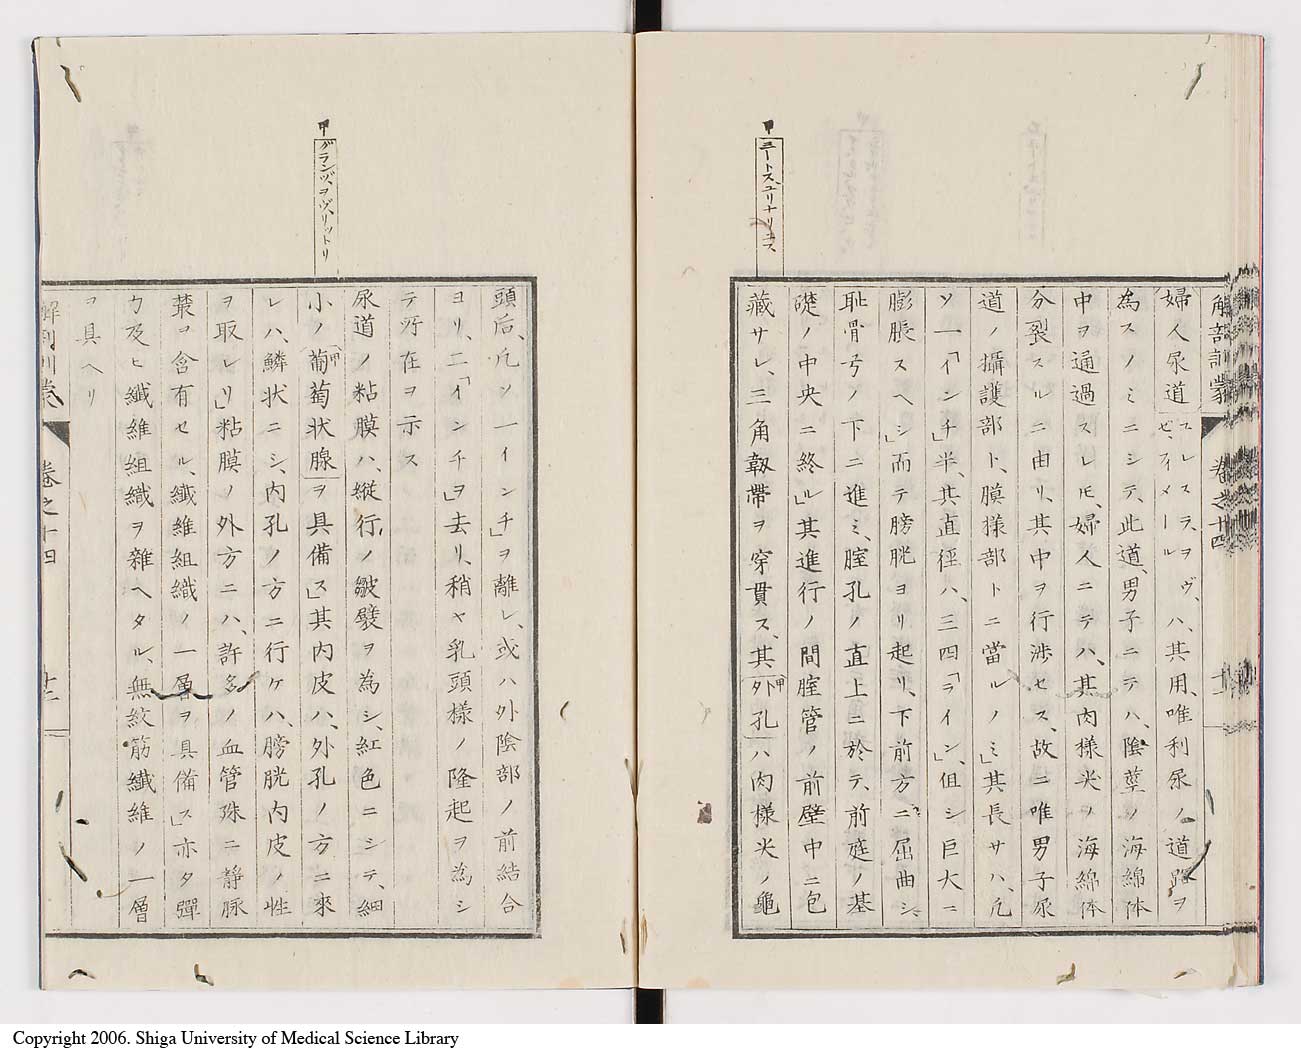 解剖訓蒙 卷之十四 十二
甲 ミートス、ユリナリユス
婦人尿道 ユレスラ、ヲヴ、ゼ、フィメール ハ、其用、唯利尿ノ道路ヲ
為スノミニシテ、此道、男子ニテハ、陰莖ノ海綿体
中ヲ通過スレ𪜈、婦人ニテハ、其肉様尖ヲ海綿体
分裂スルニ由リ、其中ヲ行渉セス、故ニ唯男子尿
道ノ攝護部ト、膜様部トニ當ルノミ」其長サハ、凡
ソ一「インチ」半、其直徑ハ、三四「ライン」、但シ巨大ニ
膨脹スヘシ」而テ膀胱ヨリ起リ、下前方ニ屈曲シ、
耻骨弓ノ下ニ進ミ、腟孔ノ直上ニ於テ、前庭ノ基
礎ノ中央ニ終ル」其進行ノ間腟管ノ前壁中ニ包
藏サレ、三角靱帶ヲ穿貫ス、其甲外孔ハ肉様尖ノ龜
甲 グランヅ、ヲヴ、リットリ
頭后、凡ソ一「インチ」ヲ離レ、或ハ外陰部ノ前結合
ヨリ、二「インチ」ヲ去リ、稍ヤ乳頭様ノ隆起ヲ為シ
テ所在ヲ示ス
尿道ノ粘膜ハ、縱行ノ皺襞ヲ為シ、紅色ニシテ、細
小ノ甲葡萄状腺ヲ具備ス」其内皮ハ、外孔ノ方ニ來
レハ、鱗状ニシ、内孔ノ方ニ行ケハ、膀胱内皮ノ性
ヲ取レリ」粘膜ノ外方ニハ、許多ノ血管殊ニ静脉
叢ヲ含有セル、纎維組織ノ一層ヲ具備ス」亦タ彈
力及ヒ纎維組織ヲ雜ヘタル、無紋筋纎維ノ一層
ヲ具ヘリ
解剖訓蒙 卷之十四 十二
Copyright 2006. Shiga University of Medical Science Library